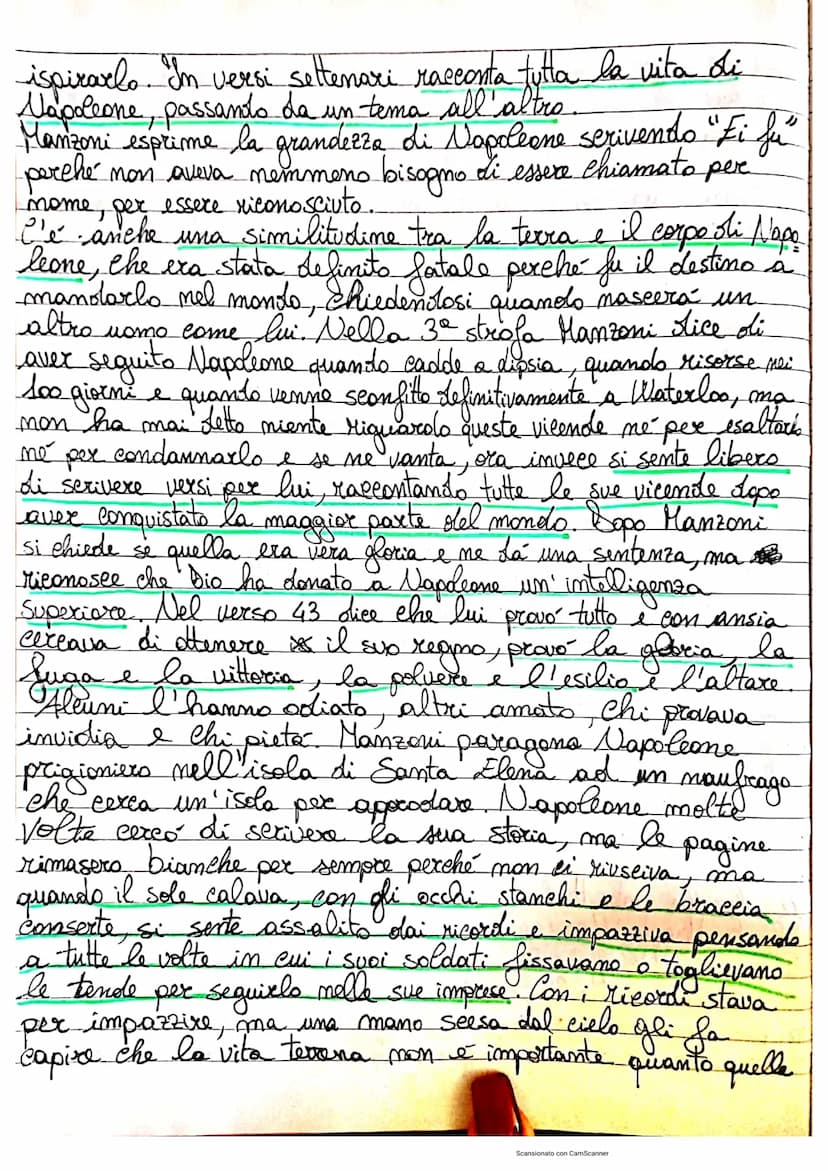 ispirarlo. In versi settenari racconta tutta la vita di
Napoleone, passando da un tema all'altro.
Manzoni esprime la grandezza di Napoleone scrivendo "Ei fu"
perché non aveva nemmeno bisogno di essere chiamato per
nome, per essere riconosciuto.
C'é anche una similitudine tra la terra e il corpo di Napo
leone, che era stata definito fatale perché fu il destino a
mandarlo nel mondo, chiedendosi quando nascerá un
altro uomo come lui. Nella 3ª strofa Manzoni dice di
aver seguito Napoleone quando cadde a dipsia, quando risorse nei
100 giorni e quando venne sconfitto definitivamente a Waterloo, ma
non ha mai detto niente riguardo queste vicende né per esaltarlo
né per condannarlo e se ne vanta, ora invece si sente libero
di scrivere versi per lui, raccontando tutte le sue vicende dopo
aver conquistato la maggior parte del mondo. Dopo Manzoni
si chiede se quella era vera gloria e ne dá una sentenza, ma
riconosce che Dio ha donato a Napoleone un'intelligenza
superiore. Nel verso 43 dice che lui provó tutto e con ansia
cercava di ottenere il suo regno, provó la gloria, la
fuga e la vittoria, la polvere e l'esilio e l'altare.
Alcuni l'hanno odiato, altri amato, chi provava
invidia e chi pietá. Manzoni paragona Napoleone
prigioniero nell'isola di Santa Elena ad un naufrago
che cerca un'isola per approdare. Napoleone molte
volte cercó di scrivere la sua storia, ma le pagine
rimasero bianche per sempre perché non ci riusciva, ma
quando il sole calava, con gli occhi stanchi e le braccia
conserte, si sente assalito dai ricordi e impazziva pensando
a tutte le volte in cui i suoi soldati fissavano o toglievano
le tende per seguirlo nelle sue imprese. Con i ricordi stava
per impazzire, ma una mano scesa dal cielo gli fa
capire che la vita terrena non é importante quanto quella
Scansionato con CamScanner